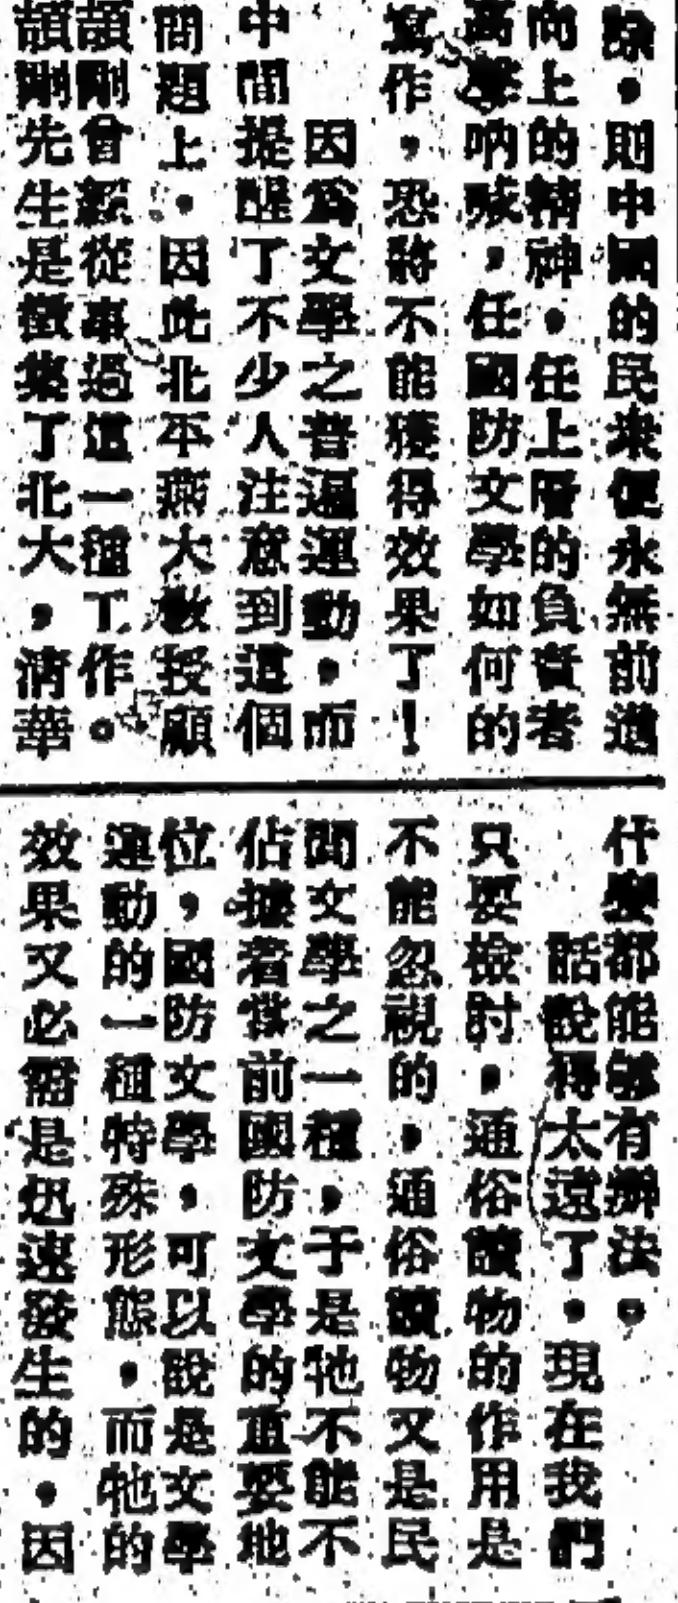 除，則中國的民衆便永無前進
向上的精神，任上層的負責者
高聲吶喊，任國防文學如何的
寫作，恐將不能獲得效果了！
因爲文學之普遍運動，而
中間提醒了不少人注意到這個
問題上，因此北平燕大教授顧
頡剛曾經從事過這一種工作。
頡剛先生是徵集了北大，清華
什麽都能够有辦法。
話說得太遠了，現在我們
只要檢討，通俗讀物的作用是
不能忽視的，通俗讀物又是民
間文學之一種，于是牠不能不
佔據着當前國防文學的重要地
位，國防文學，可以說是文學
運動的一種特殊形態，而牠的
效果又必需是迅速發生的，因